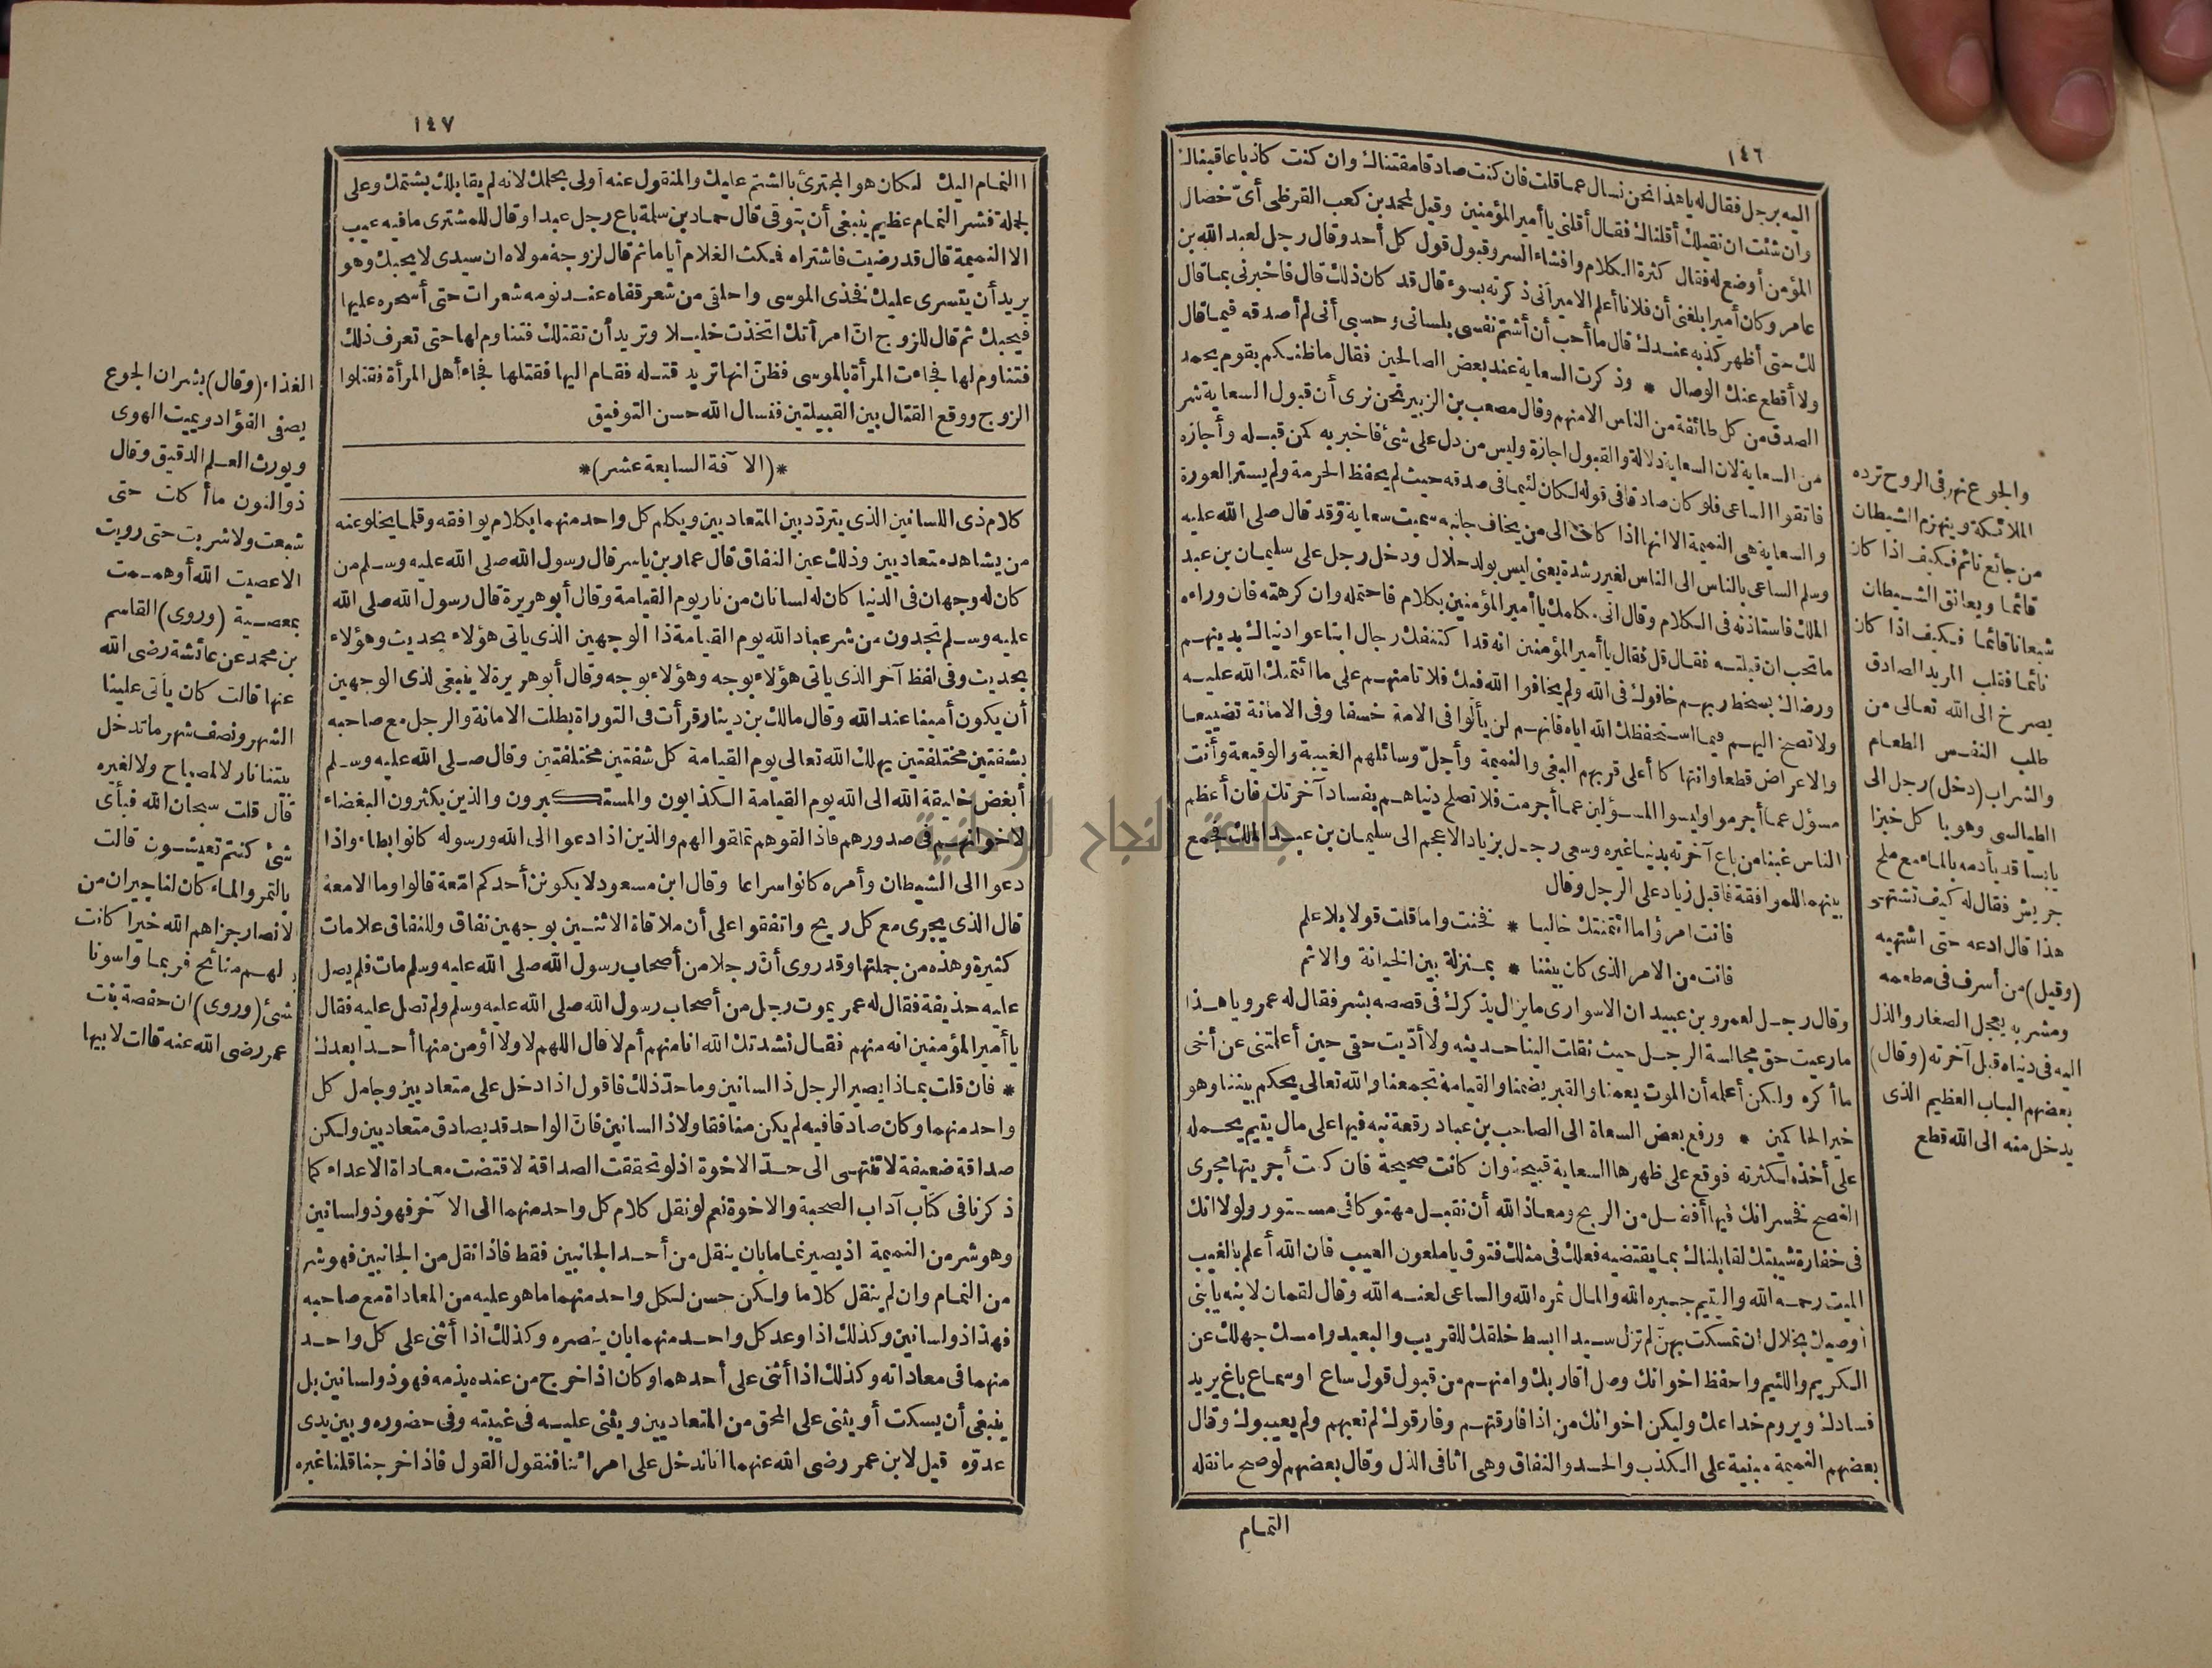 ١٤٦
اليه برجل فقال له ياهذا نحن نسال عما قلت فان كنت صادقا مقتناك وان كنت كاذبا عاقبناك
وان شئت ان نقيلك أقلناك فقال أقلنى ياأمير المؤمنين وقيل لمحمد بن كعب القرظى أىّ خصال
المؤمن أوضع له فقال كثرة الكلام وافشاء السر وقبول قول كل أحد وقال رجل لعبد الله بن
عامر وكان أميرا بلغنى أن فلانا أعلم الامير أنى ذكرته بسوء قال قد كان ذلك قال فاخبرنى بما قال
لك حتى أظهر كذبه عندك قال ما أحب أن أشتم نفسى بلسانى وحسبى أنى لم أصدقه فيما قال
ولا أقطع عنك الوصال * وذكرت السعاية عند بعض الصالحين فقال ماظنكم بقوم يحمد
الصدق من كل طائفة من الناس الامنهم وقال مصعب بن الزبير نحن نرى أن قبول السعاية شر
من السعاية لان السعاية دلالة والقبول اجازة وليس من دل على شئ فاخبر به كمن قبله وأجازه
فاتقوا الساعى فلو كان صادقا فى قوله لكان لئيما فى صدقه حيث لم يحفظ الحرمة ولم يستر العورة
والسعاية هى النميمة الا انها اذا كانت الى من يخاف جانبه سميت سعاية وقد قال صلى الله عليه
وسلم الساعى بالناس الى الناس لغير رشدة يعنى ليس بولد حلال ودخل رجل على سليمان بن عبد
الملك فاستاذنه فى الكلام وقال انى مكلمك ياأمير المؤمنين بكلام فاحتمله وان كرهته فان وراءه
ماتحب ان قبلته فقال قل فقال ياأمير المؤمنين انه قد اكتنفك رجال ابتاعوا دنياك بدينهم
ورضاك بسخط ربهم خافوك فى الله ولم يخافوا الله فيك فلا تامنهم على ما ائتمنك الله عليه
ولا تصخ اليهم فيما استحفظك الله اياه فانهم لن يألوا فى الامة خسفا وفى الامانة تضييعا
والاعراض قطعا وانتهاكا أعلى قربهم البغى والنميمة وأجلّ وسائلهم الغيبة والوقيعة وأنت
مسؤل عما أجرموا وليسوا المسؤلين عما أجرمت فلا تصلح دنياهم بفساد آخرتك فان أعظم
الناس غبنا من باع آخرته بدنيا غيره وسعى رجل بزياد الاعجم الى سليمان بن عبد الملك فجمع
بينهما للموافقة فاقبل زياد على الرجل وقال
فانت امرؤ اما ائتمنتك خاليا * فخنت واما قلت قولا بلا علم
فانت من الامر الذى كان بيننا * بمنزلة بين الخيانة والاثم
وقال رجل لعمرو بن عبيد ان الاسوارى مايزال يذكرك فى قصصه بشر فقال له عمرو ياهذا
مارعيت حق مجالسة الرجل حيث نقلت الينا حديثه ولا أدّيت حقى حين أعلمتنى عن أخى
ما أكره ولكن أعلمه أن الموت يعمنا والقبر يضمنا والقيامة تجمعنا والله تعالى يحكم بيننا وهو
خير الحاكمين * ورفع بعض السعاة الى الصاحب بن عباد رقعة نبه فيها على مال يتيم يحمله
على أخذه لكثرته فوقع على ظهرها السعاية قبيحة وان كانت صحيحة فان كنت أجريتها مجرى
النصح فخسرانك فيها أفضل من الربح ومعاذ الله أن نقبل مهتوكا فى مستور ولولا انك
فى خفارة شيبتك لقابلناك بما يقتضيه فعلك فى مثلك فتوق ياملعون العيب فان الله أعلم بالغيب
الميت رحمه الله واليتيم جبره الله والمال ثمره الله والساعى لعنه الله وقال لقمان لابنه يابنى
أوصيك بخلال ان تمسكت بهنّ لم تزل سيدا ابسط خلقك للقريب والبعيد وامسك جهلك عن
الكريم واللئيم واحفظ اخوانك وصل اقاربك وامنهم من قبول قول ساع اوسماع باغ يريد
فسادك ويروم خداعك وليكن اخوانك من اذا فارقتهم وفارقوك لم تعبهم ولم يعيبوك وقال
بعضهم النميمة مبنية على الكذب والحسد والنفاق وهى اثافى الذل وقال بعضهم لوصح مانقله
النمام
والجوع نهر فى الروح ترده
الملائكة وينهزم الشيطان
من جائع نائم فكيف اذا كان
قائما ويعانق الشيطان
شبعانا قائما فكيف اذا كان
نائما فقلب المريد الصادق
يصرخ الى الله تعالى من
طلب النفس الطعام
والشراب (دخل) رجل الى
الطيالسى وهو ياكل خبزا
يابسا قد بأدمه بالماء مع ملح
جريش فقال له كيف تشتهى
هذا قال ادعه حتى اشتهيه
(وقيل) من أسرف فى مطعمه
ومشربه يعجل الصغار والذل
اليه فى دنياه قبل آخرته (وقال)
بعضهم الباب العظيم الذى
يدخل منه الى الله قطع
١٤٧
النمام اليك لكان هو المجترئ بالشتم عليك والمنقول عنه أولى بحلمك لانه لم يقابلك بشتمك وعلى
لجملة فشر النمام عظيم ينبغى أن يتوقى قال حماد بن سلمة باع رجل عبدا وقال للمشترى مافيه عيب
الا النميمة قال قد رضيت فاشتراه فمكث الغلام أياما ثم قال لزوجة مولاه ان سيدى لايحبك وهو
يريد أن يتسرى عليك فخذى الموسى واحلقى من شعر قفاه عند نومه شعرات حتى أسحره عليها
فيحبك ثم قال للزوج انّ امرأتك اتخذت خليلا وتريد أن تقتلك فتناوم لها حتى تعرف ذلك
فتناوم لها فجاءت المرأة بالموسى فظنّ انها تريد قتله فقام اليها فقتلها فجاء أهل المرأة فقتلوا
الزوج ووقع القتال بين القبيلتين فنسال الله حسن التوفيق
*(الآفة السابعة عشر)*
كلام ذى اللسانين الذى يتردّد بين المتعاديين ويكلم كل واحد منهما بكلام يوافقه وقلما يخلو عنه
من يشاهد متعاديين وذلك عين النفاق قال عمار بن ياسر قال رسول الله صلى الله عليه وسلم من
كان له وجهان فى الدنيا كان له لسانان من نار يوم القيامة وقال أبو هريرة قال رسول الله صلى الله
عليه وسلم تجدون من شر عباد الله يوم القيامة ذا الوجهين الذى ياتى هؤلاء بحديث وهؤلاء
بحديث وفى لفظ آخر الذى ياتى هؤلاء بوجه وهؤلاء بوجه وقال أبو هريرة لا ينبغى لذى الوجهين
أن يكون أمينا عند الله وقال مالك بن دينار قرأت فى التوراة بطلت الامانة والرجل مع صاحبه
بشفتين مختلفتين يهلك الله تعالى يوم القيامة كل شفتين مختلفتين وقال صلى الله عليه وسلم
أبغض خليقة الله الى الله يوم القيامة الكذابون والمستكبرون والذين يكثرون البغضاء
لاخوانهم فى صدورهم فاذا لقوهم تملقوا لهم والذين اذا دعوا الى الله ورسوله كانوا بطاء واذا
دعوا الى الشيطان وأمره كانوا سراعا وقال ابن مسعود لا يكوننّ أحدكم امّعة قالوا وما الامعة
قال الذى يجرى مع كل ريح واتفقوا على أن ملاقاة الاثنين بوجهين نفاق وللنفاق علامات
كثيرة وهذه من جملتها وقد روى أنّ رجلا من أصحاب رسول الله صلى الله عليه وسلم مات فلم يصل
عليه حذيفة فقال له عمر يموت رجل من أصحاب رسول الله صلى الله عليه وسلم ولم تصل عليه فقال
ياأمير المؤمنين انه منهم فقال نشدتك الله انا منهم أم لا قال اللهم لا ولا أؤمن منها أحدا بعدك
* فان قلت بماذا يصير الرجل ذا لسانين وما حدّ ذلك فاقول اذا دخل على متعاديين وجامل كل
واحد منهما وكان صادقا فيه لم يكن منافقا ولا ذا لسانين فانّ الواحد قد يصادق متعاديين ولكن
صداقة ضعيفة لا تنتهى الى حدّ الاخوة اذ لو تحققت الصداقة لاقتضت معاداة الاعداء كما
ذكرنا فى كتاب آداب الصحبة والاخوة نعم لو نقل كلام كل واحد منهما الى الآخر فهو ذو لسانين
وهو شر من النميمة اذ يصير نماما بان ينقل من أحد الجانبين فقط فاذا نقل من الجانبين فهو شر
من النمام وان لم ينقل كلاما ولكن حسن لكل واحد منهما ما هو عليه من المعاداة مع صاحبه
فهذا ذو لسانين وكذلك اذا وعد كل واحد منهما بان ينصره وكذلك اذا أثنى على كل واحد
منهما فى معاداته وكذلك اذا أثنى على أحدهما وكان اذا خرج من عنده يذمه فهو ذو لسانين بل
ينبغى أن يسكت أو يثنى على المحق من المتعاديين ويثنى عليه فى غيبته وفى حضوره وبين يدى
عدوّه قيل لابن عمر رضى الله عنهما انا ندخل على امرائنا فنقول القول فاذا خرجنا قلنا غيره
الغذاء (وقال) بشر ان الجوع
يصفى الفؤاد ويميت الهوى
ويورث العلم الدقيق وقال
ذو النون ما أكلت حتى
شبعت ولا شربت حتى رويت
الا عصيت الله أو هممت
بمعصية (وروى) القاسم
بن محمد عن عائشة رضى الله
عنها قالت كان يأتى علينا
الشهر ونصف شهر ماتدخل
بيتنا نار لا لمصباح ولا لغيره
قال قلت سبحان الله فبأى
شئ كنتم تعيشون قالت
بالتمر والماء كان لنا جيران من
الانصار جزاهم الله خيرا كانت
لهم منائح فربما واسونا
بشئ (وروى) ان حفصة بنت
عمر رضى الله عنه قالت لابيها
جامعة النجاح الوطنية